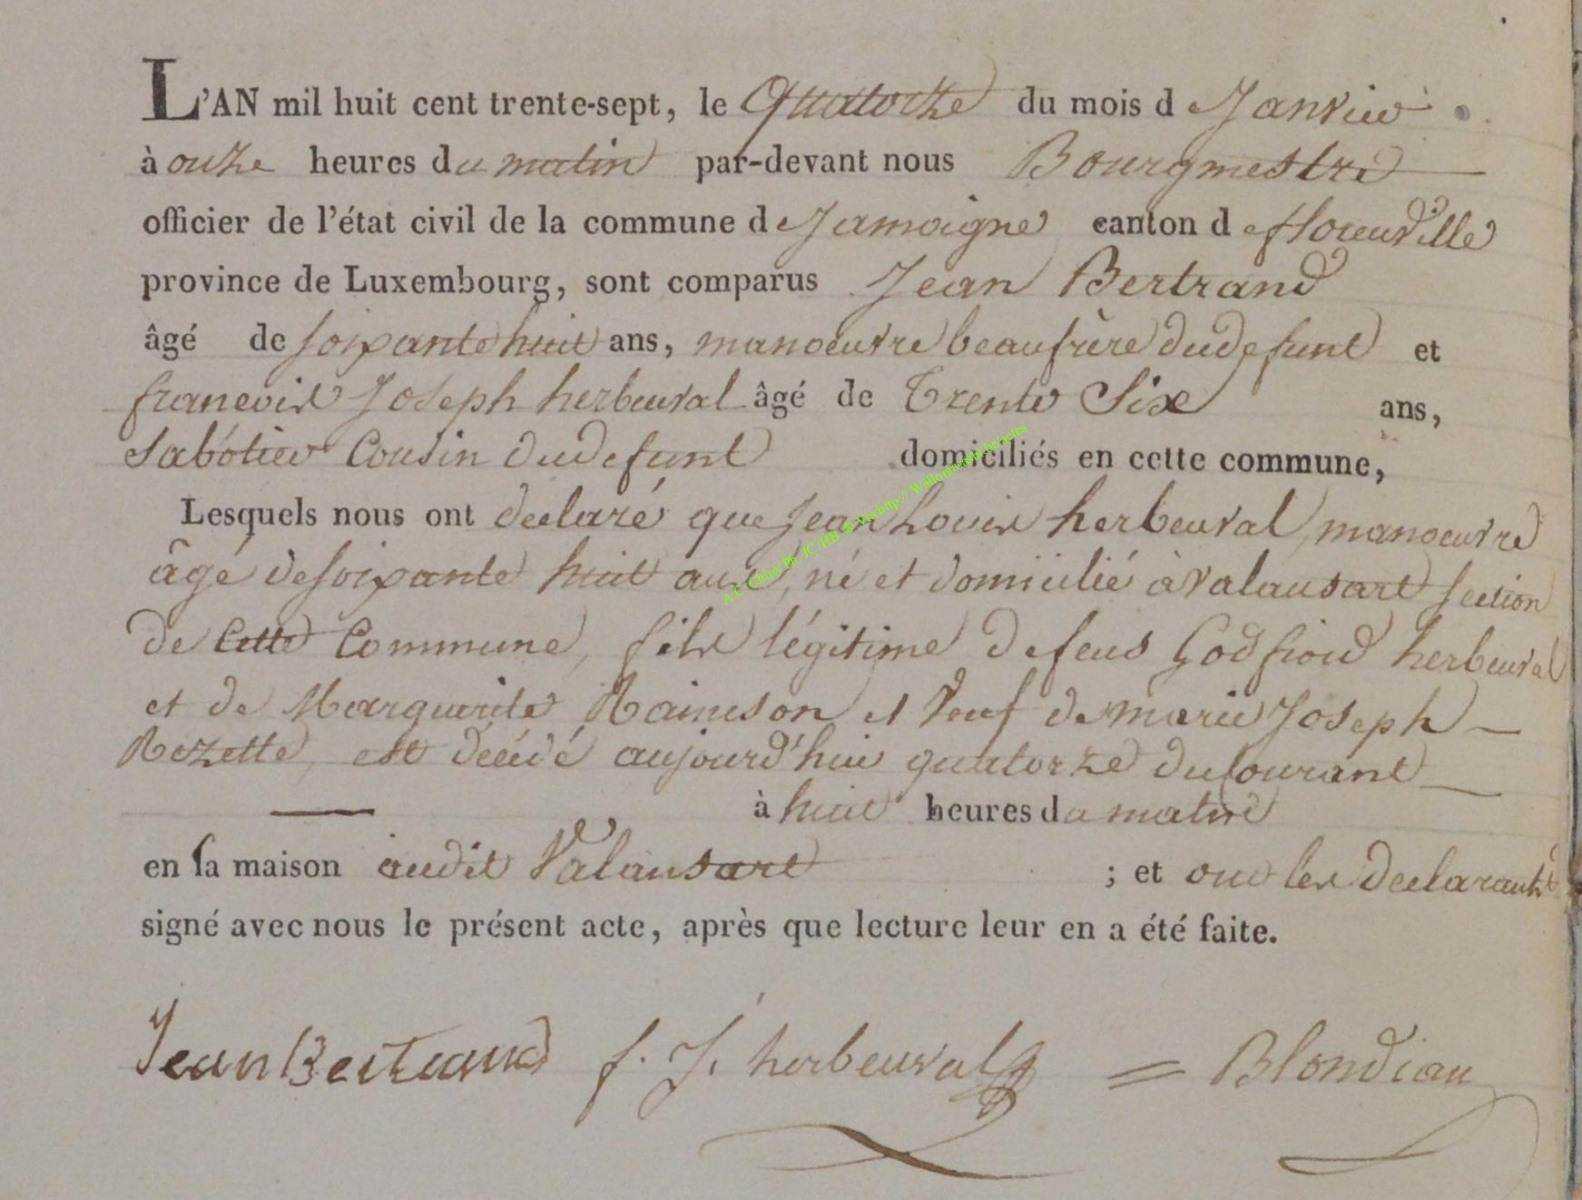 L'AN mil huit cent trente-sept, le Quatorze du mois de Janvier
à onze heures du matin par-devant nous Bourgmestre
officier de l'état civil de la commune de Jamoigne canton de florenville
province de Luxembourg, sont comparus Jean Bertrand
âgé de soixante huit ans, manoeuvre beaufrère dudefunt et
francois Joseph herbeuval âgé de Trente Six ans,
Sabótier Cousin dudefunt domiciliés en cette commune,
Lesquels nous ont declaré que Jean Louis herbeuval, manoeuvre
âgé de soixante huit ans, né et domicilié à valansart section
de Cette Commune, fils légitime de feus Godfroid herbeuval
et de Marguerite Raineson et Veuf de marie Joseph
Rozette, est décédé aujourd'hui quatorze du Courant
à huit heures du matin
en sa maison audit Valansart ; et ont les declarants
signé avec nous le présent acte, après que lecture leur en a été faite.
Jean Bertrand f. J. herbeuval = Blondiau